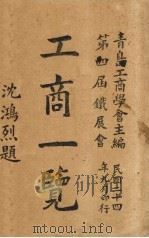 青島工商學會主編
第四屆鐵展會
工商一覽
民國二十四
年九月印行
沈鴻烈題